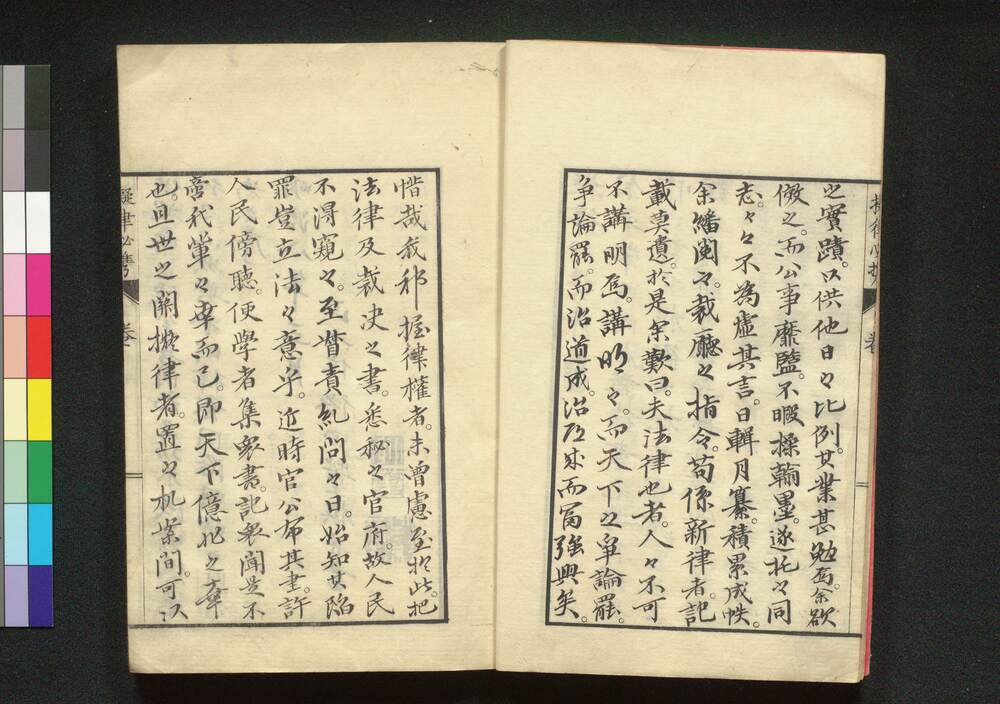 之實蹟。以供他日之比例。其業甚勉焉。余欲
倣之。而公事靡盬。不暇操翰墨。遂托之同
志。々々不為虛其言。日輯月纂。積累成帙。
余繙閱之。裁廳之指令。苟係新律者。記
載莫遺。於是余歎曰。夫法律也者。人々不可
不講明焉。講明之。而天下之爭論罷。
爭論罷。而治道成。治道成而富強興矣。
惜哉我邦握律權者。未曾慮至於此。把
法律及裁決之書。悉秘之官府。故人民
不得窺之。至督責糺問之日。始知其陷
罪豈立法之意乎。近時官公布其書。許
人民傍聽。便學者集眾書。記眾聞是不
啻我輩之幸而已。即天下億兆之幸
也。且世之關擬律者。置之机案間。可以
擬律必携 卷一